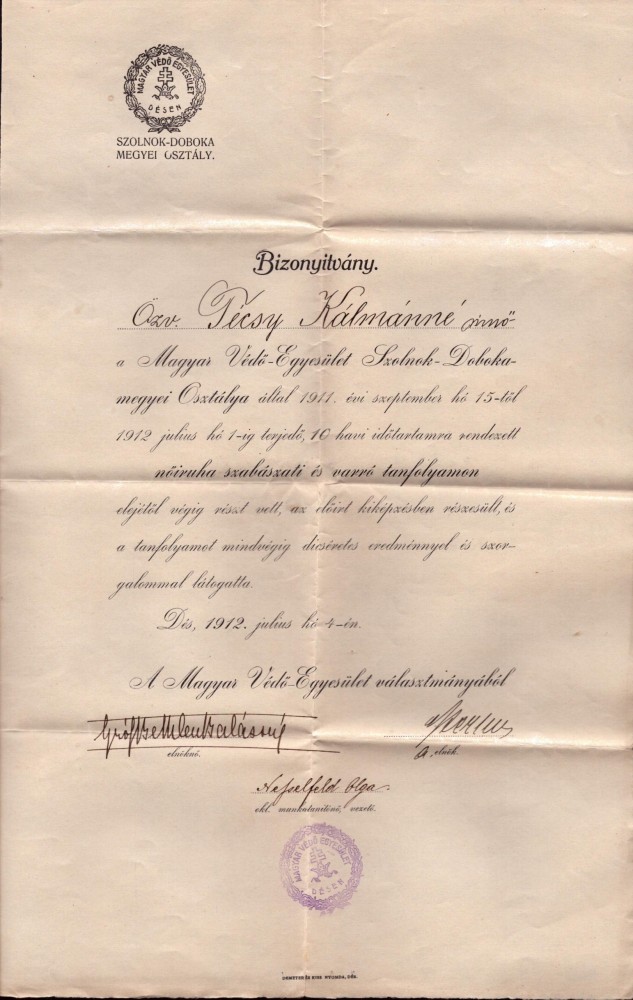 MAGYAR VÉDŐ EGYESÜLET
DÉSEN
SZOLNOK-DOBOKA
MEGYEI OSZTÁLY.
Bizonyitvány.
Özv. Pécsy Kálmánné úrnő
a Magyar Védő-Egyesület Szolnok-Doboka-
megyei Osztálya által 1911. évi szeptember hó 15-től
1912 julius hó 1-ig terjedő, 10 havi időtartamra rendezett
nőiruha szabászati és varró tanfolyamon
elejétől végig részt vett, az előirt kiképzésben részesült, és
a tanfolyamot mindvégig dicséretes eredménnyel és szor-
galommal látogatta.
Dés, 1912. julius hó 4-én.
A Magyar Védő-Egyesület választmányából
Gróf Bethlen Balázsné
elnöknő.
a. elnök.
Nesselfeld Olga
okl. munkatanitónő, vezető.
MAGYAR VÉDŐ EGYESÜLET
DÉSEN
DEMETER ÉS KISS NYOMDA, DÉS.